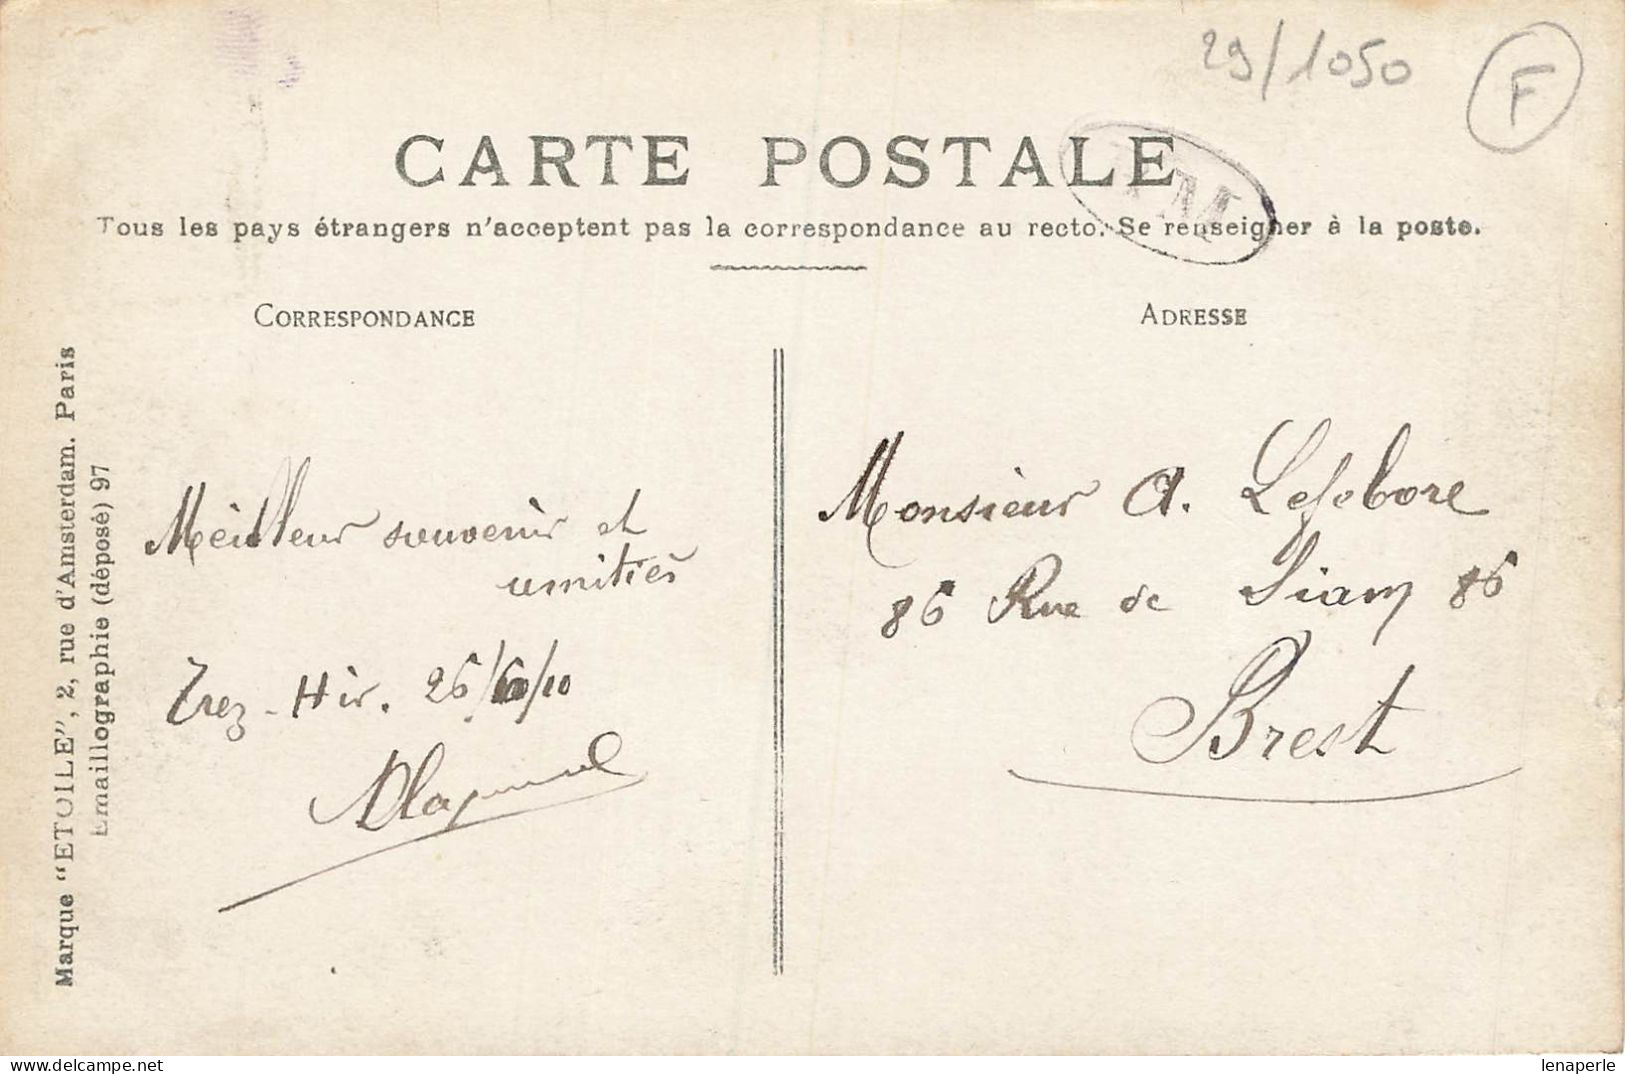 29/1050
F
CARTE POSTALE
Tous les pays étrangers n'acceptent pas la correspondance au recto. Se renseigner à la poste.
CORRESPONDANCE
ADRESSE
Marque "ETOILE", 2, rue d'Amsterdam. Paris
Emaillographie (déposé) 97
Meilleur souvenir et
amitiés
Trez-Hir. 26/ /10
Monsieur A. Lefebvre
86 Rue de Siam 86
Brest
lenaperle